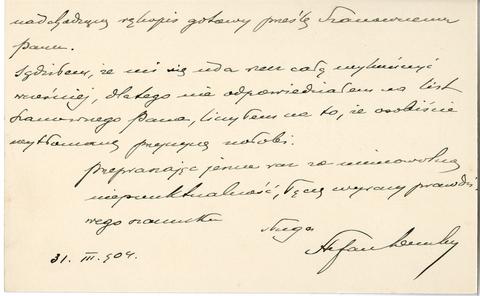 nadchodzący rękopis gotowy prześlę Szanownemu
Panu.
Sądziłem, że mi się uda rzecz całą wykończyć
wcześniej, dlatego nie odpowiedziałem na list
Szanownego Pana, liczyłem na to, że osobiście
wytłomaczę przyczynę
Przepraszając jeszcze raz za mimowolną
niepunktualność, łączę wyrazy prawdzi-
wego szacunku
Sługa
Stefan
31. III. 904.